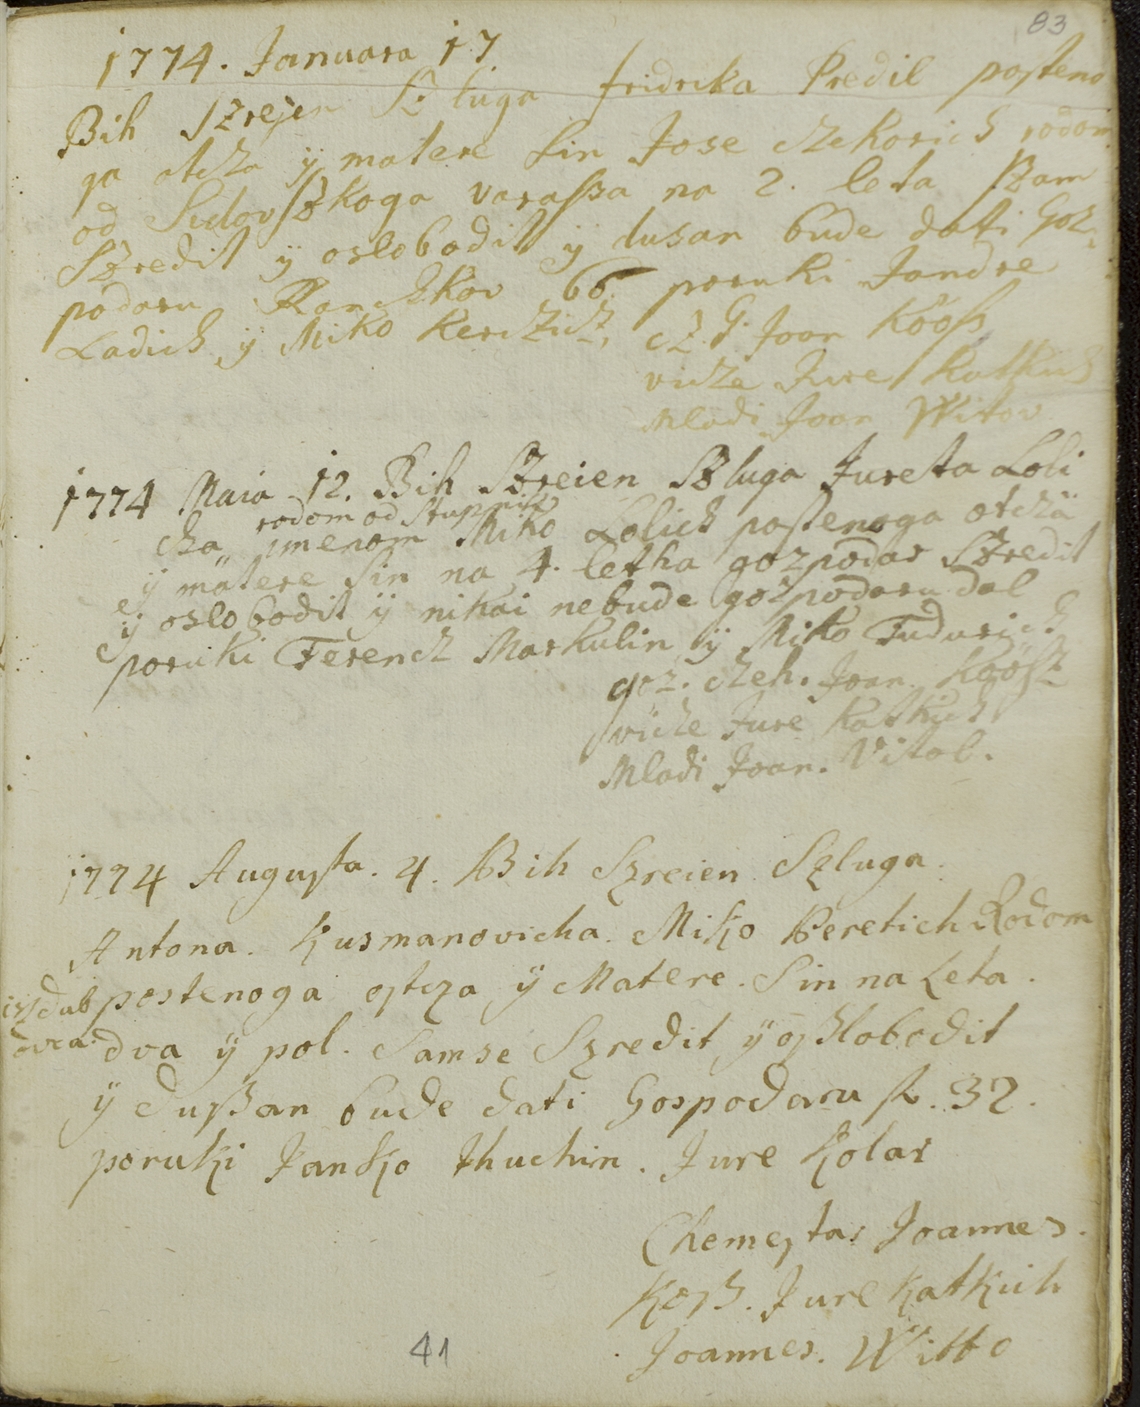 83
1774. Januara 17
Bih Szrejen Szluga fridrika Predil posteno
ga otcza ÿ matere Sin Jose czekovich rodom
od Sidovszkoga varassa na 2. leta Szam
Szredil ÿ oslobodil ÿ dusan bude dati Goz
podaru Ranckov 66 poruki Jandre
Ladich ÿ Miko Kerczicz, cz. G. Joan Kooss
vicze Jure Katkich
Mladi Joan Witov
1774 Maia 12. Bih Szreien Szluga Jureta Loli
rodom od Stupnik
cha, imenom Miko Lolich postenoga otcza
ÿ matere Sin na 4. letha gozpodar Szredil
ÿ oslobodil ÿ nikai nebude gozpodaru dal
poruki Ferencz Markulin ÿ Miko Tudurich
goz. czeh. Joan. Köösz
vicze Jure Katkich
Mladi Joan. Vitob.
1774 Augusta. 4. Bih Szreien Szluga
Antona. Kusmanovicha. Miko Peretich Rodom
iz dub postenoga otcza ÿ Matere. Sin na Leta.
ovca. dva ÿ pol. Samse Szredil ÿ oszlobodil
ÿ dussan bude dati Gospodaru fl. 32.
poruki Janko Thuchin. Jure Kolar
Chemestar Joannes.
Koss. Jure Katkich
Joannes. Witto
41